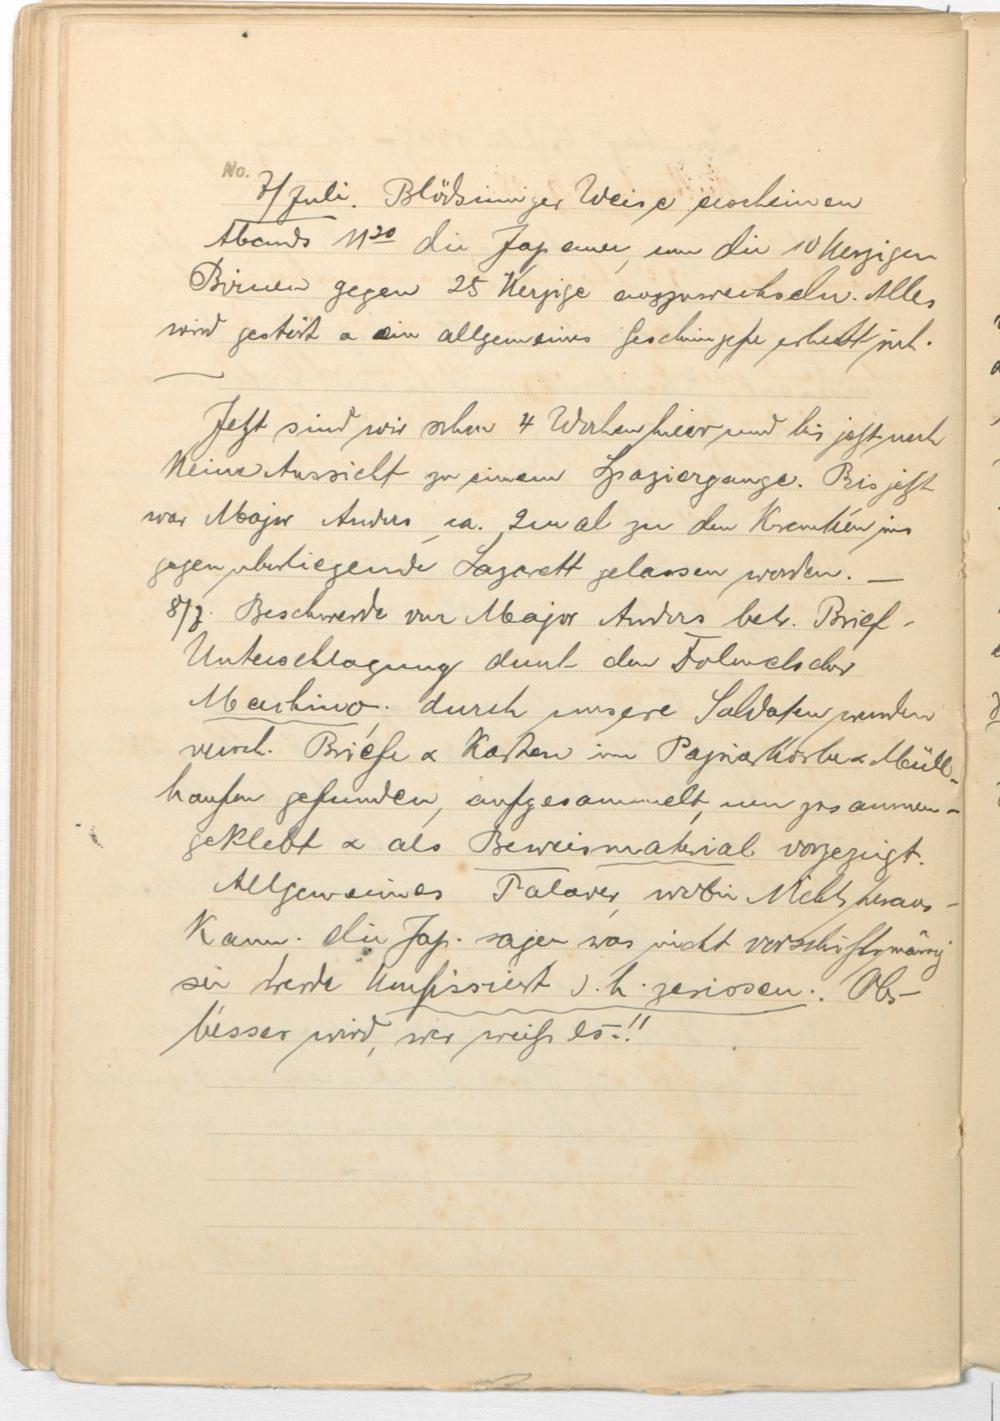 No.
7/Juli. Blödsinniger Weise erscheinen
Abends 11²⁰ die Japaner, um die 10 Kerzigen
Birnen gegen 25 Kerzige auszuwechseln. Alles
wird gestört & ein allgemeines Geschimpfe erhebt sich.
Jetzt sind wir schon 4 Wochen hier und bis jetzt noch
keine Aussicht zu einem Spaziergange. Bis jetzt
war Major Anders, ca. 2mal zu den Kranken ins
gegenüberliegende Lazarett gelassen worden. —
8/7. Beschwerde von Major Anders betr. Brief-
Unterschlagung durch den Dolmetscher
Mashino. durch unsere Soldaten wurden
versch. Briefe & Karten im Papierkorbe & Müll-
haufen gefunden, aufgesammelt, nun zusammen-
geklebt & als Beweismaterial vorgezeigt.
Allgemeines Palaver, wobei Nichts heraus-
kam. die Jap. sagen was nicht vorschriftsmässig
sei werde konfissziert d.h. zerissen. Obs-
besser wird, wer weiß es.!!